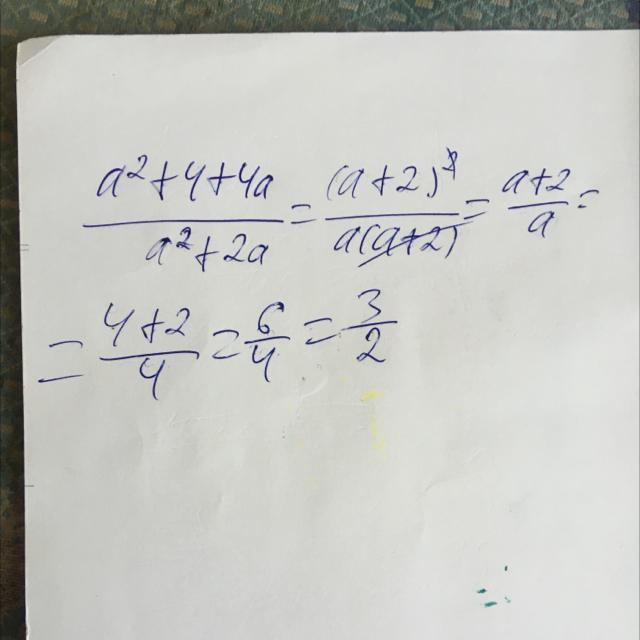 (a²+4+4a)/(a²+2a) = (a+2)²/(a(a+2)) = (a+2)/a =
= (4+2)/4 = 6/4 = 3/2